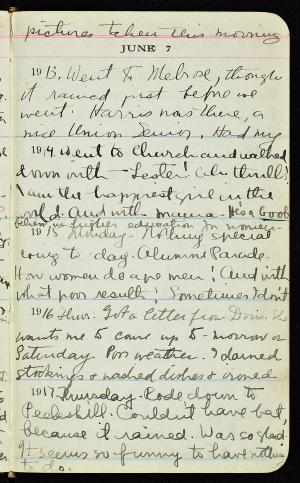 pictures taken this morning
JUNE 7
1913. Went to Melrose, though
it rained just before we
went. Harris was there, a
nice Union Senior. Had my
1914. Went to Church and walked
down with - Lester! Oh thrill!
I am the happiest girl in the
world. And with mamma - He's a Goob
believer in higher education for women-
1915 Monday - Nothing special
to-day. Alumnae Parade.
How women do ape men! And with
what poor results! Sometimes I don't
1916 Thur. Got a letter from Doris. She
wants me to come up to-morrow or
Saturday. Poor weather. I darned
stockings & washed dishes & ironed
1917 Thursday. Rode down to
Peekskill. Couldn't have bat,
because it rained. Was so glad.
It seems so funny to have nothing
to do.